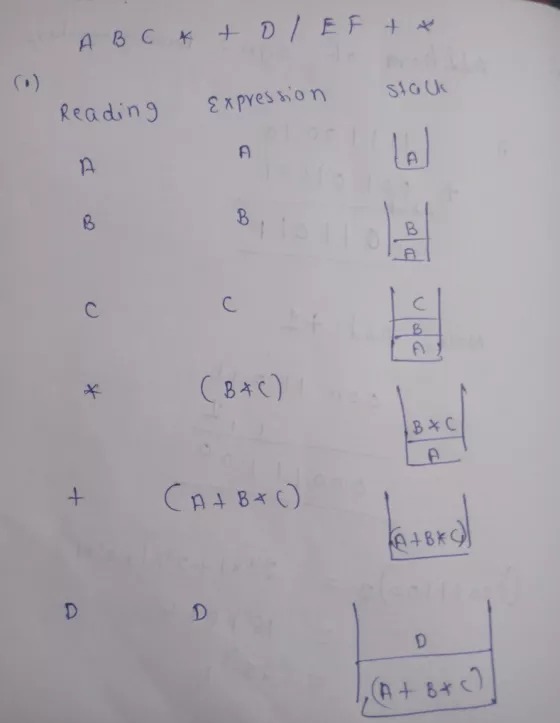 A B C * + D / E F + *
(1)
Reading Expression Stack
A A A
B B B
A
C C C
B
A
* (B*C) B*C
A
+ (A + B*C) (A+B*C)
D D D
(A + B*C)